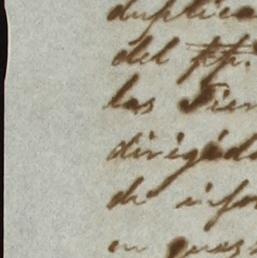 duplica
del pp.
las Tier
dirigéd
de infor
en